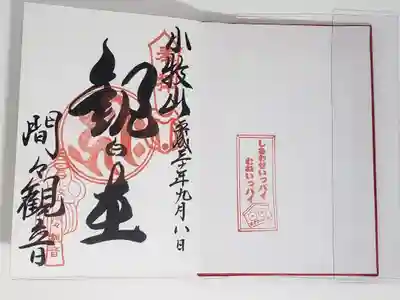 小牧山
平成三十年九月八日
観自在
間々観音
しあわせいっパイ
むねいっパイ